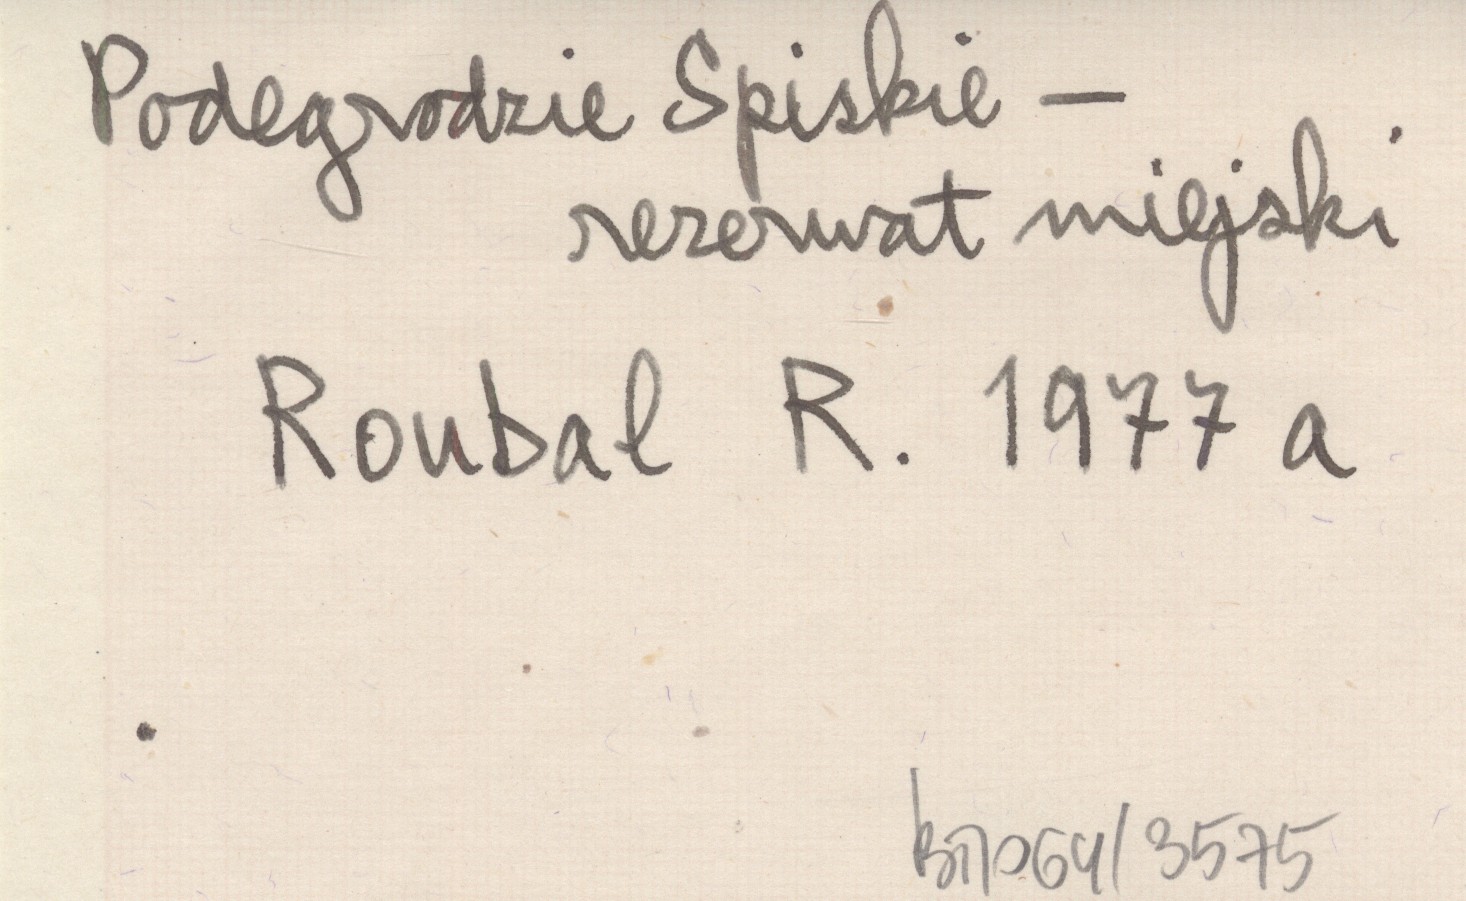 Podegrodzie Spiskie –
rezerwat miejski
Roubal R. 1977 a
3575